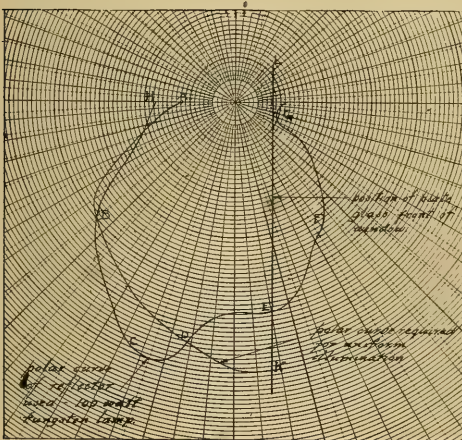 H
A
B
F
position of plate
glass front of
window.
E
C
D
K
polar curve required
for uniform
illumination
polar curve
of reflector
used - 100 watt
tungsten lamp.